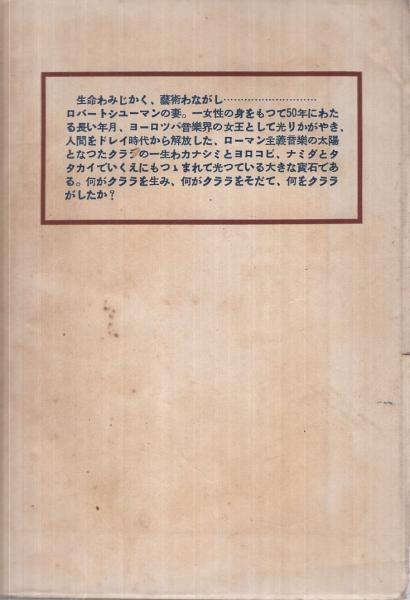 生命わみじかく、藝術わながし…………………………
ロバートシューマンの妻。一女性の身をもつて50年にわた
る長い年月、ヨーロツパ音樂界の女王として光りかがやき、
人間をドレイ時代から解放した、ローマン主義音樂の太陽
となつたクララの一生わカナシミとヨロコビ、ナミダとタ
タカイでいくえにもつゝまれて光つている大きな寶石であ
る。何がクララを生み、何がクララをそだて、何をクララ
がしたか？